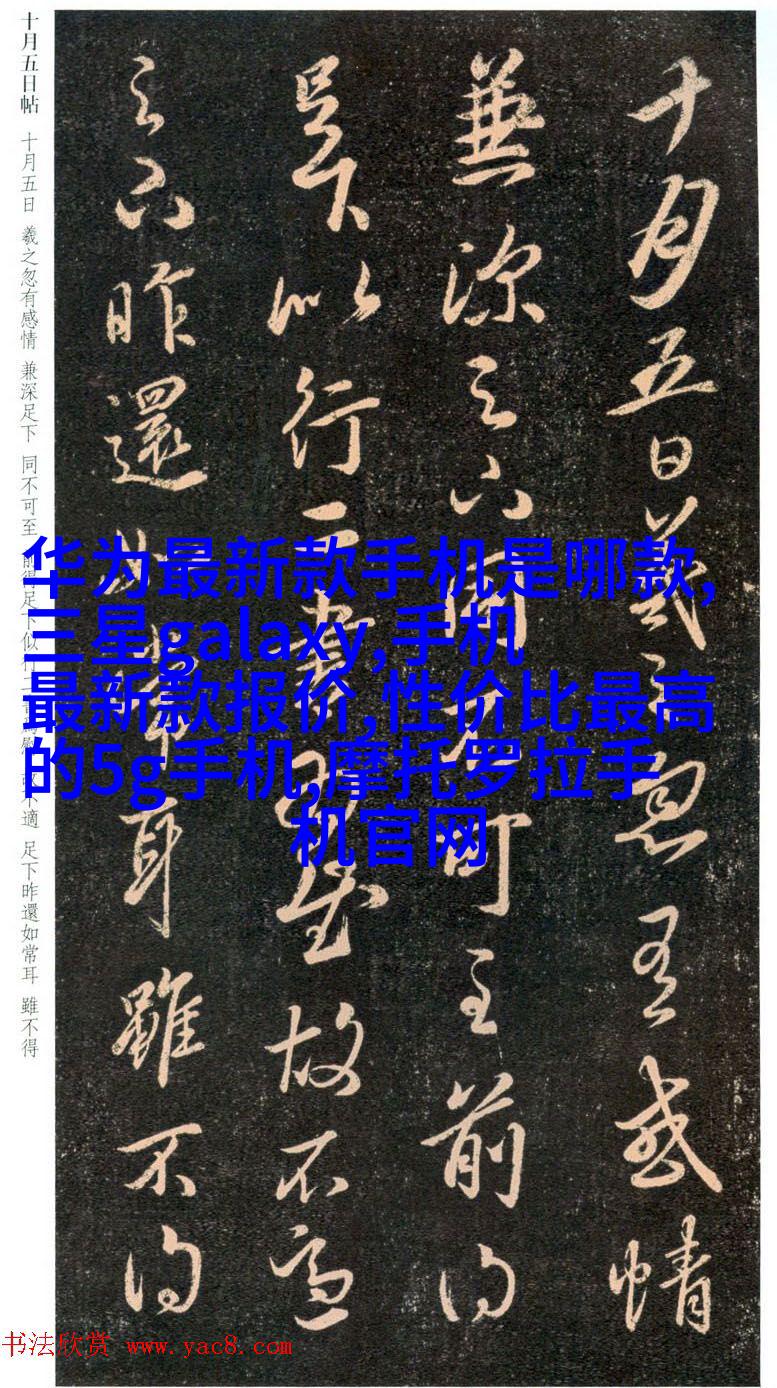 十月五日羲之忽有感情
兼深足下同不可至前得
足下似行二書為慰故不適
足下昨還如常耳雖不得
十月五日帖 十月五日 羲之忽有感情 兼深足下 同不可至 前得足下似行二書為慰 故不適 足下昨還如常耳 雖不得
华为最新款手机是哪款,
三星galaxy,手机
最新款报价,性价比最高
的5g手机,摩托罗拉手
机官网
书法欣赏 www.yac8.com